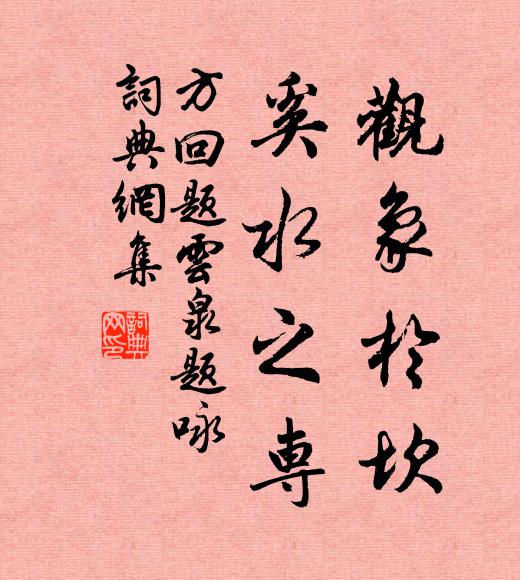 觀象於坎
奚水之専
方回題雲泉題咏
詞典網集